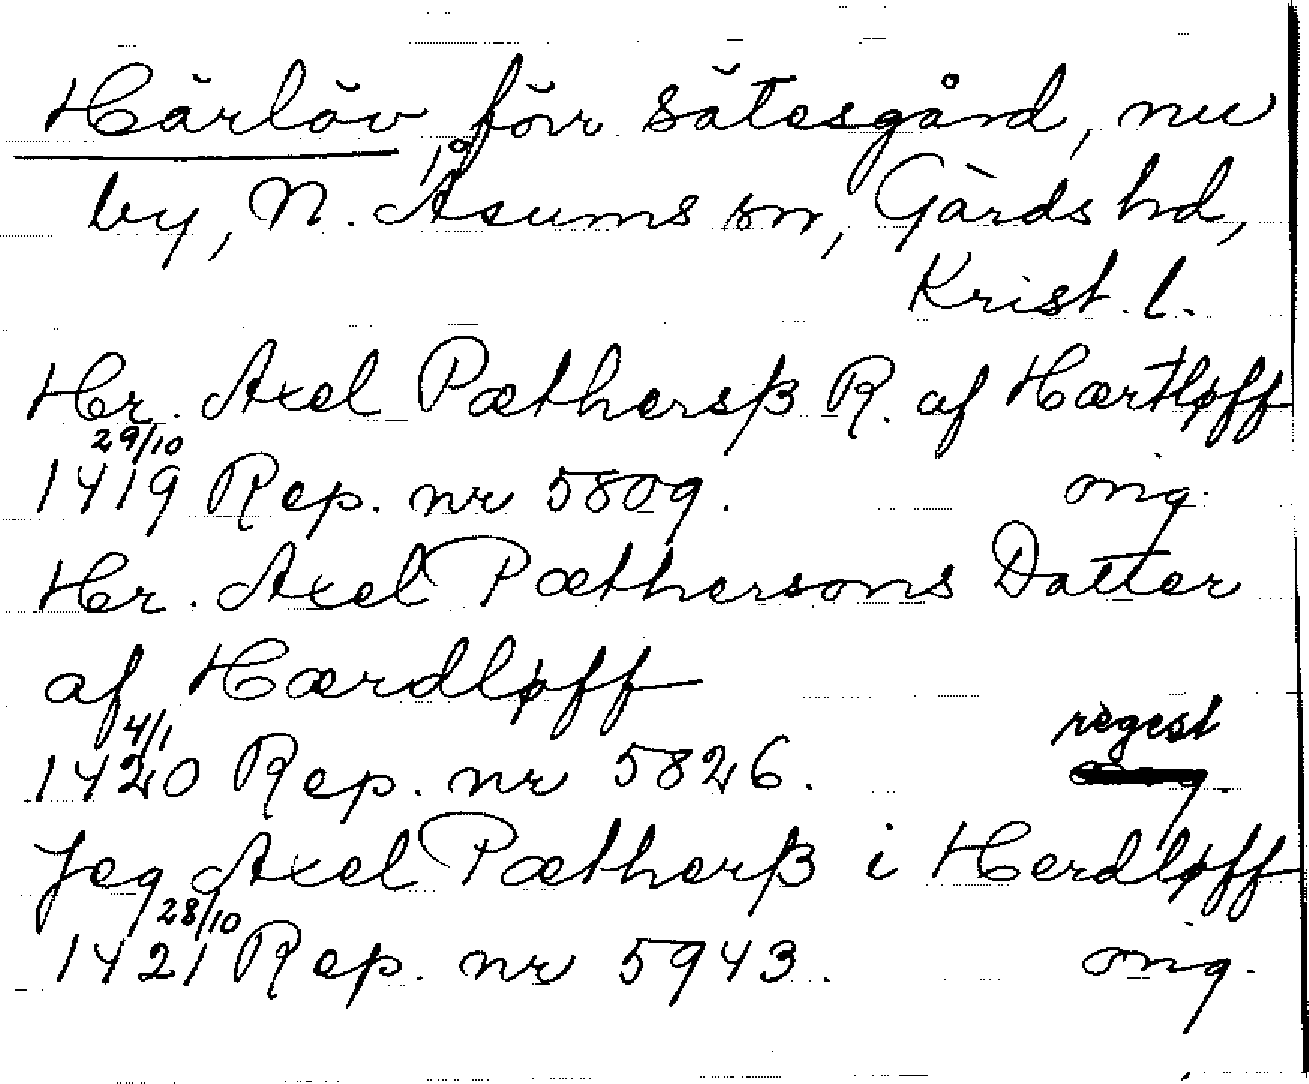 Härlöv, förr sätesgård, nu
by, N. Åsums sn, Gärds hd,
Krist. l.
Hr. Axel Pæthersß R. af Hærtløff
29/10
1419 Rep. nr 5809. orig.
Hr. Axel Pæthersons Datter
af Hærdløff
4/1 regest
1420 Rep. nr 5826.
Jeg Axel Pætherß i Herdløff
28/10
1421 Rep. nr 5943. orig.